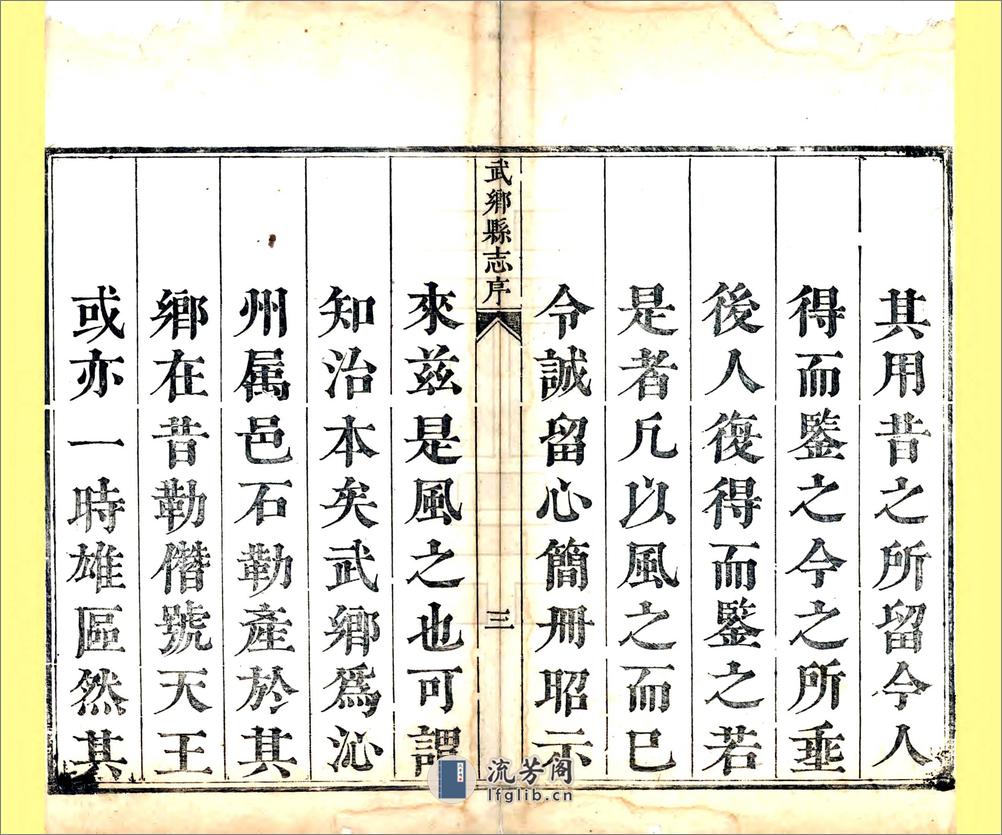 其用昔之所留今人
得而鑒之今之所垂
後人復得而鑒之若
是者凡以風之而已
令誠留心簡冊昭示
武鄉縣志序
三
來茲是風之也可謂
知治本矣武鄉爲沁
州属邑石勒產於其
鄉在昔勒僭號天王
或亦一時雄區然其
流芳阁
lfglib.cn